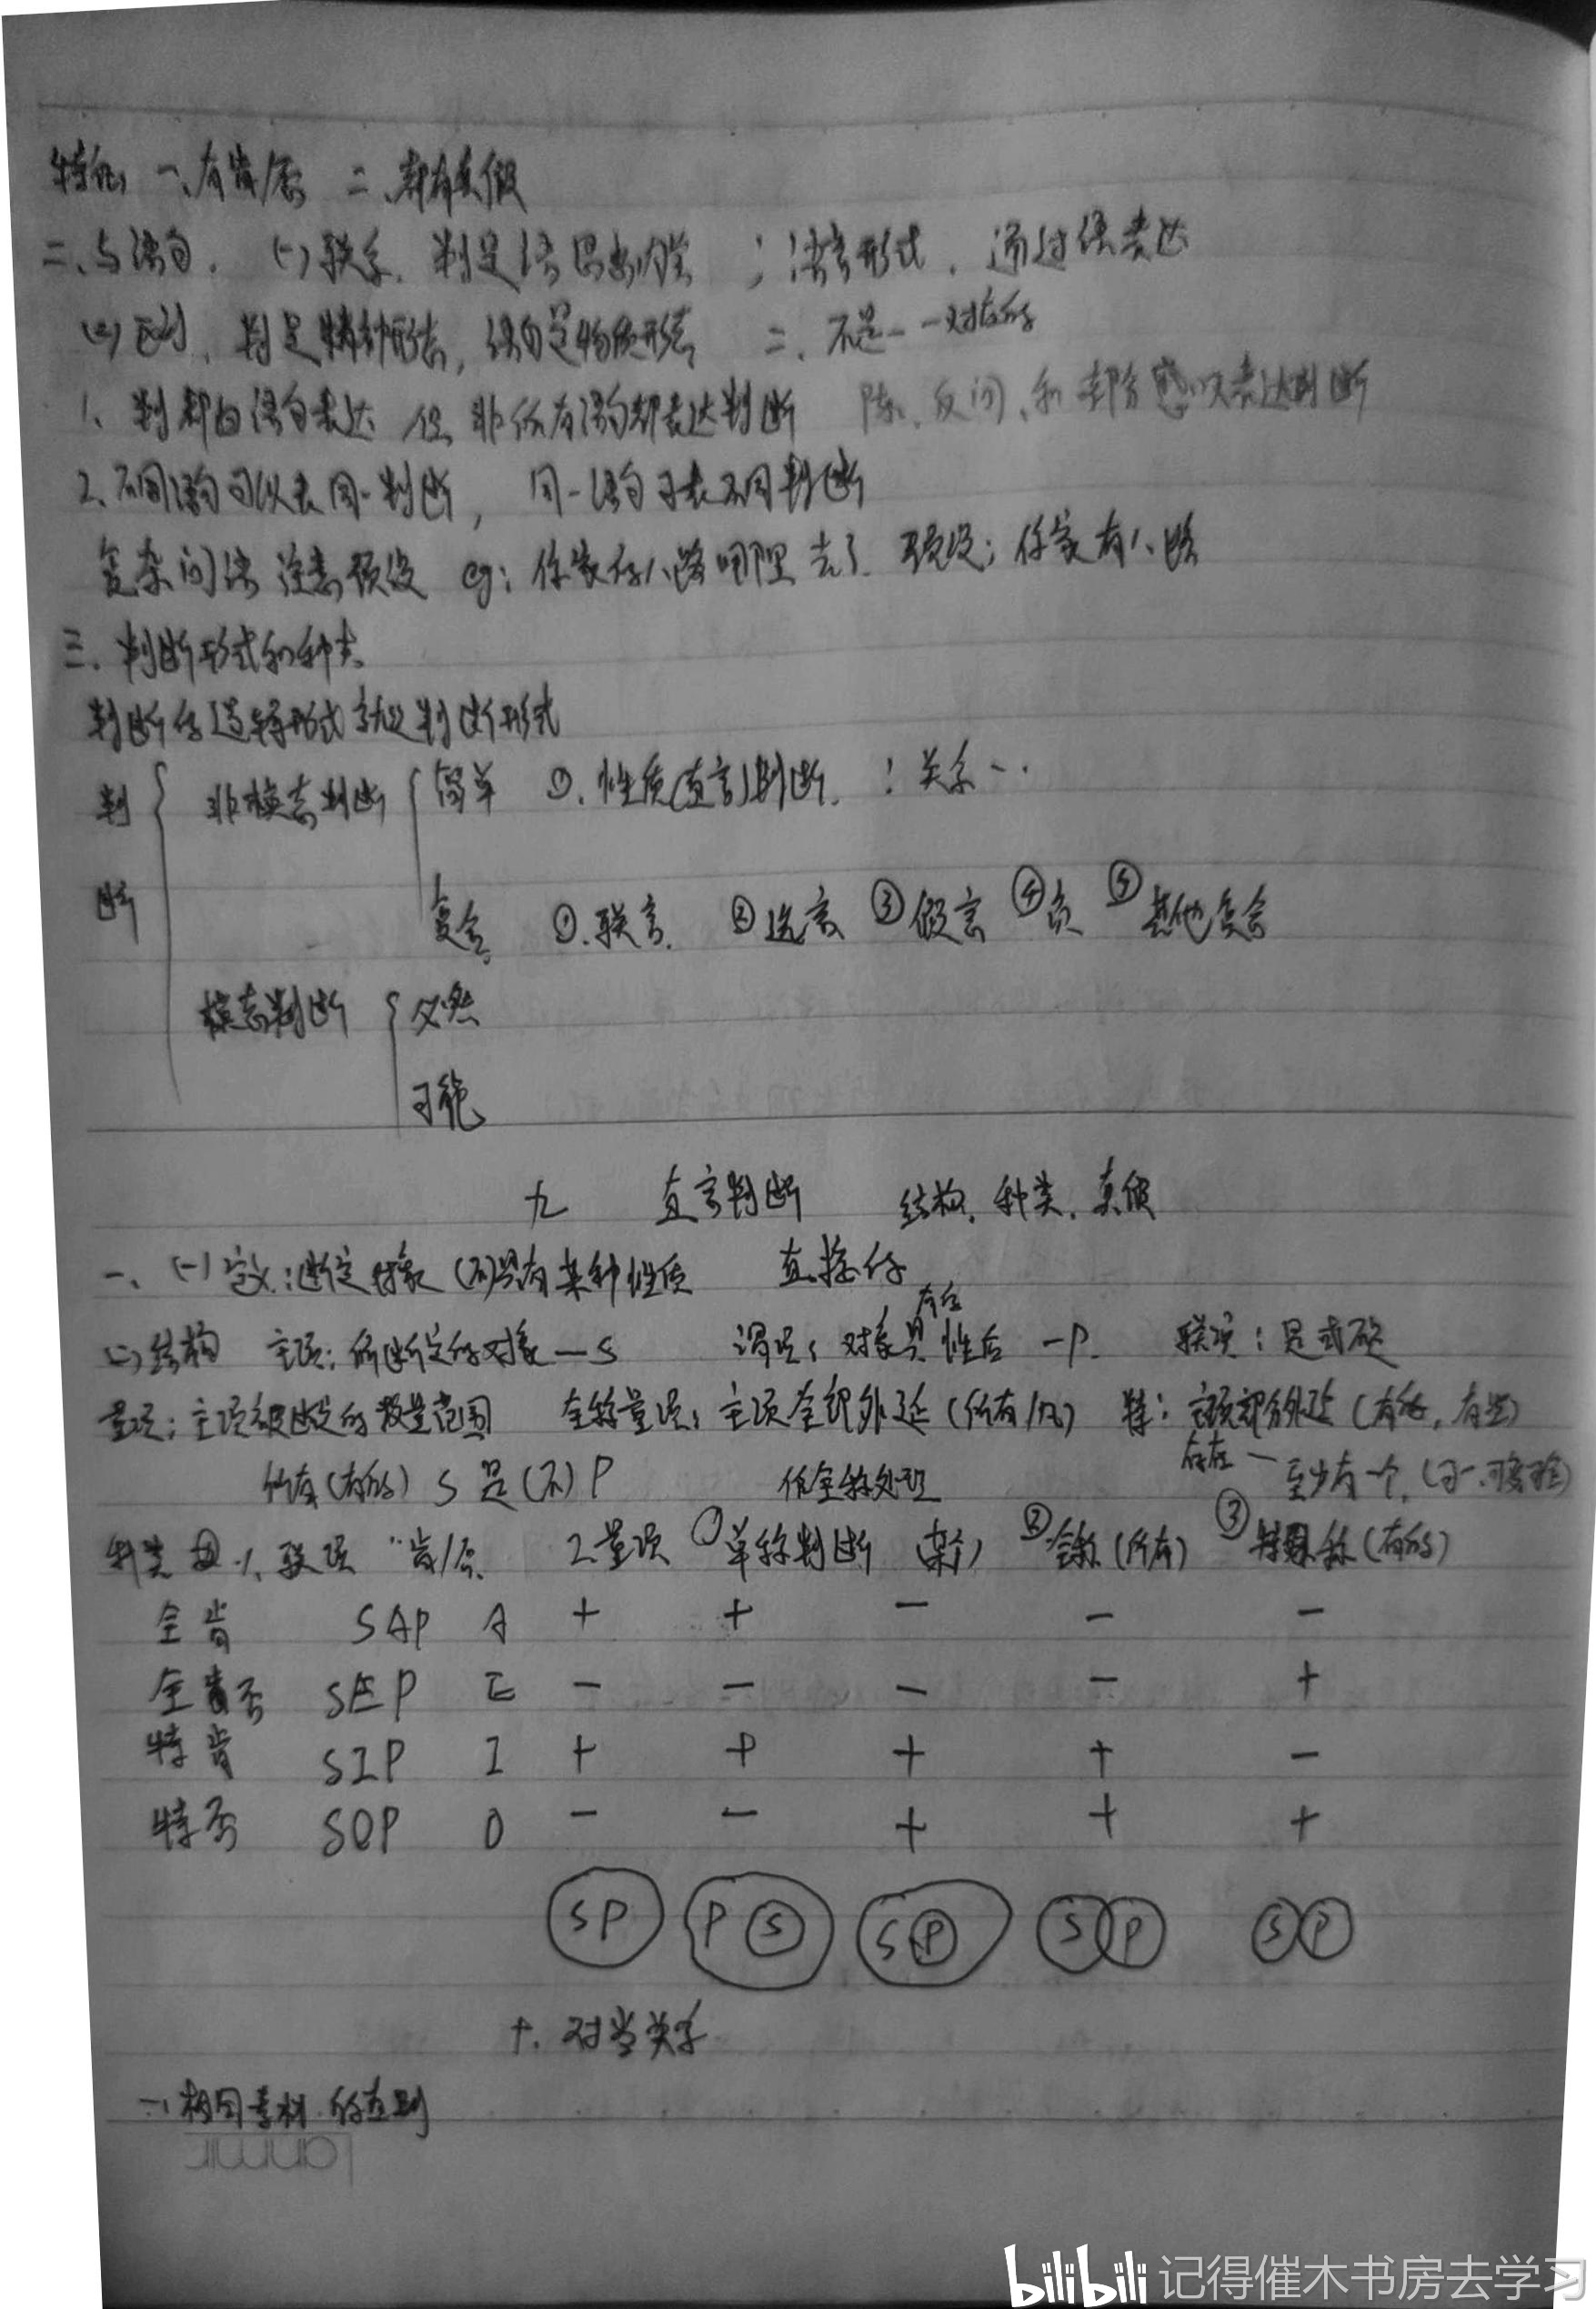 特征 一、有肯/否 二、都有真假
二、与语句. (一) 联系. 判是语思想内容 ; 语言形式, 通过语表达
(二) 区别, 判是精神形态, 语句是物质形态 二、不是一一对应的
1、判都由语句表达 但, 非所有语句都表达判断 陈、反问、和部分感叹表达判断
2、不同语句可以表同一判断, 同一语句可表不同判断
复杂问语 注意预设 eg: 你家的八路哪里去了. 预设: 你家有八路
三、判断形式和种类
判断的逻辑形式就是判断形式
判断 { 非模态判断 { 简单 ①. 性质(直言)判断. : 关系..
复合 ①.联言. ②选言 ③假言 ④负 ⑤其他复合
模态判断 { 必然
可能
九 直言判断 结构, 种类, 真假
一、(一) 定义: 断定对象 (不)具有某种性质 直接的
(二) 结构 主项: 所断定的对象—S 谓项: 对象具有 性 —P. 联项: 是或
量项: 主项被断定的数量范围 全称量项: 主项全部外延 (所有/凡) 特: 主项部分外延 (有的, 有些)
存在 — 至少有一个.
所有(有的) S 是(不) P 作全称处理
种类 1、联项 肯/否 2、量项 ①单称判断 (某个) ②全称 (所有) ③特称 (有的)
全肯 SAP A + + − − −
全否 SEP E − − − − +
特肯 SIP I + + + + −
特否 SOP O − − + + +
S P P S S P S P S P
十. 对当关系
一、相同素材 的直判
bilibili 记得催木书房去学习